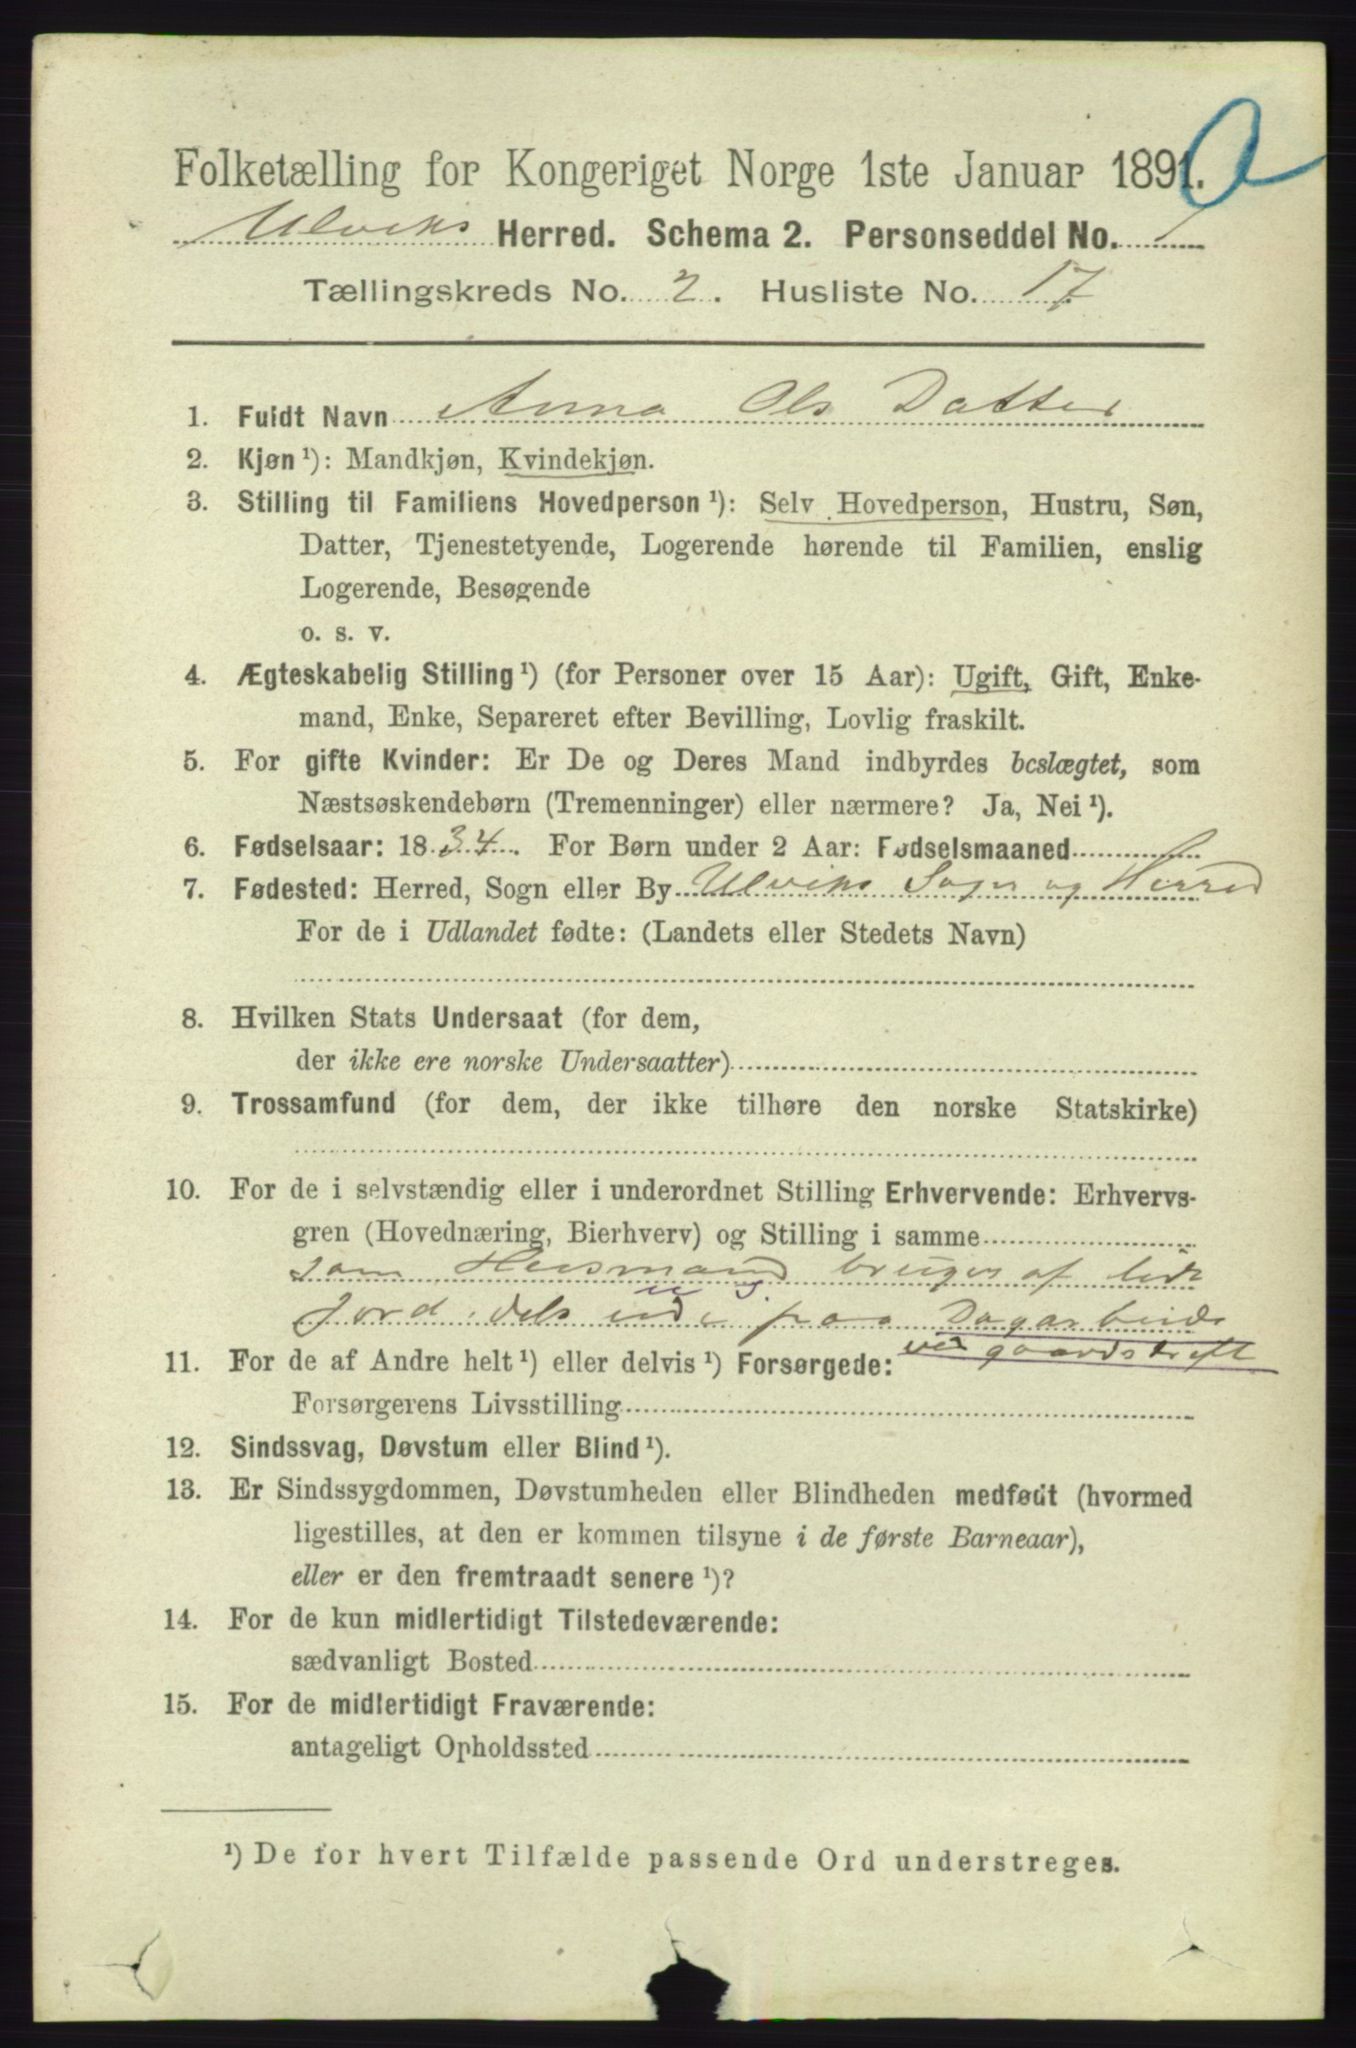 Folketælling for Kongeriget Norge 1ste Januar 1891.
Ulviks Herred. Schema 2. Personseddel No. 1
Tællingskreds No. 2. Husliste No. 17
1. Fuldt Navn Anna Ols Datter
2. Kjøn ¹): Mandkjøn, Kvindekjøn.
3. Stilling til Familiens Hovedperson ¹): Selv Hovedperson, Hustru, Søn,
Datter, Tjenestetyende, Logerende hørende til Familien, enslig
Logerende, Besøgende
o. s. v.
4. Ægteskabelig Stilling ¹) (for Personer over 15 Aar): Ugift, Gift, Enke-
mand, Enke, Separeret efter Bevilling, Lovlig fraskilt.
5. For gifte Kvinder: Er De og Deres Mand indbyrdes beslægtet, som
Næstsøskendebørn (Tremenninger) eller nærmere? Ja, Nei ¹).
6. Fødselsaar: 1834. For Børn under 2 Aar: Fødselsmaaned
7. Fødested: Herred, Sogn eller By Ulviks Sogn og Herred
For de i Udlandet fødte: (Landets eller Stedets Navn)
8. Hvilken Stats Undersaat (for dem,
der ikke ere norske Undersaatter)
9. Trossamfund (for dem, der ikke tilhøre den norske Statskirke)
10. For de i selvstændig eller i underordnet Stilling Erhvervende: Erhvervs-
gren (Hovednæring, Bierhverv) og Stilling i samme
som Husmand bruger af lidt
Jord, dels paa Dagarbeide
ved gaardsdrift
11. For de af Andre helt ¹) eller delvis ¹) Forsørgede:
Forsørgerens Livsstilling
12. Sindssvag, Døvstum eller Blind ¹).
13. Er Sindssygdommen, Døvstumheden eller Blindheden medfødt (hvormed
ligestilles, at den er kommen tilsyne i de første Barneaar),
eller er den fremtraadt senere ¹)?
14. For de kun midlertidigt Tilstedeværende:
sædvanligt Bosted
15. For de midlertidigt Fraværende:
antageligt Opholdssted
¹) De for hvert Tilfælde passende Ord understreges.